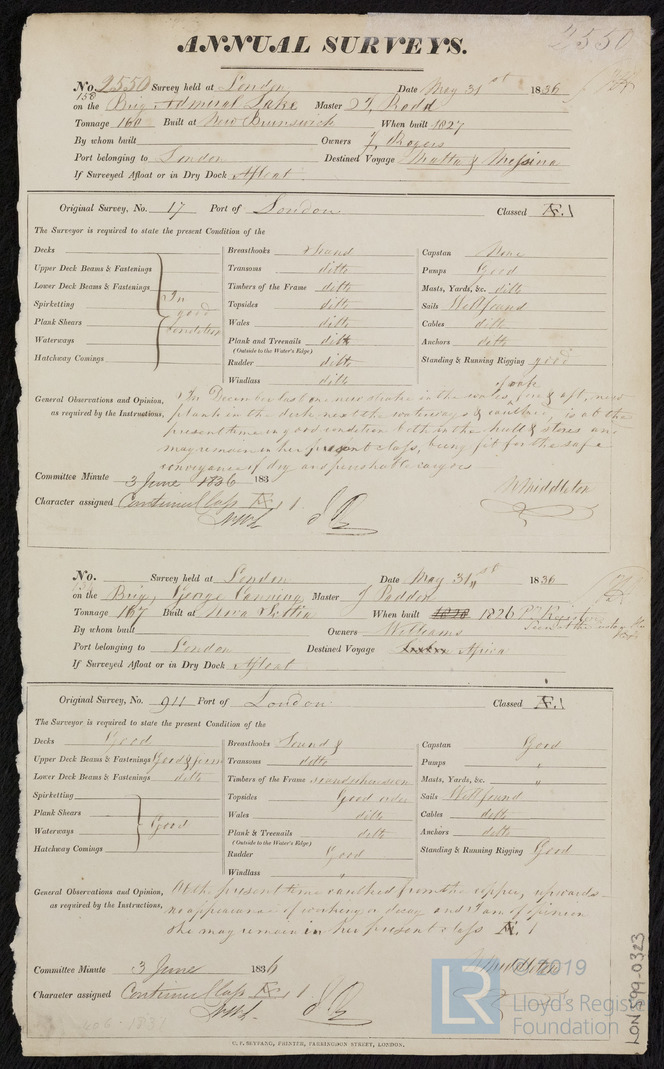 2550
ANNUAL SURVEYS.
No. 2550 Survey held at London Date May 31st 1836
on the Brig Admiral Lake Master T. Rodd
Tonnage 160 Built at New Brunswick When built 1827
By whom built Owners J. Rogers
Port belonging to London Destined Voyage Malta & Messina
If Surveyed Afloat or in Dry Dock Afloat
Original Survey, No. 17 Port of London Classed Æ.1
The Surveyor is required to state the present Condition of the
Decks
Upper Deck Beams & Fastenings
Lower Deck Beams & Fastenings
Spirketting
Plank Shears
Waterways
Hatchway Comings
In good condition
Breasthooks Sound
Transoms ditto
Timbers of the Frame ditto
Topsides ditto
Wales ditto
Plank and Treenails ditto
(Outside to the Water's Edge)
Rudder ditto
Windlass ditto
Capstan None
Pumps Good
Masts, Yards, &c. ditto
Sails Well found
Cables ditto
Anchors ditto
Standing & Running Rigging good
General Observations and Opinion, In December last one new strake in the wales fore & aft, new
as required by the Instructions, plank in the deck next the waterways & caulked, is at the
present time in good condition both in the hull & stores and
may remain in her present class, being fit for the safe
conveyance of dry and perishable cargoes
Committee Minute 3 June 1836 183
W Middleton
Character assigned Continued Class Æ 1
No. Survey held at London Date May 31st 1836
on the Brig, George Canning Master J Paddon
Tonnage 167 Built at Nova Scotia When built 1826
By whom built Owners Williams
Port belonging to London Destined Voyage Africa
If Surveyed Afloat or in Dry Dock Afloat
Original Survey, No. 911 Port of London Classed Æ.1
The Surveyor is required to state the present Condition of the
Decks Good
Upper Deck Beams & Fastenings Good & firm
Lower Deck Beams & Fastenings ditto
Spirketting
Plank Shears
Waterways
Hatchway Comings
Good
Breasthooks Sound &
Transoms ditto
Timbers of the Frame
Topsides Good order
Wales ditto
Plank & Treenails ditto
(Outside to the Water's Edge)
Rudder Good
Windlass "
Capstan Good
Pumps "
Masts, Yards, &c. "
Sails Well found
Cables ditto
Anchors ditto
Standing & Running Rigging Good
General Observations and Opinion, At the present time caulked from the copper, upwards
as required by the Instructions, no appearance of working or decay and I am of opinion
she may remain in her present class Æ. 1
Committee Minute 3 June 1836
Middleton
Character assigned Continued Class Æ 1
C. F. SEYFANG, PRINTER, FARRINGDON STREET, LONDON.
LON 599-0323
LR
© 2019
Lloyd's Register
Foundation